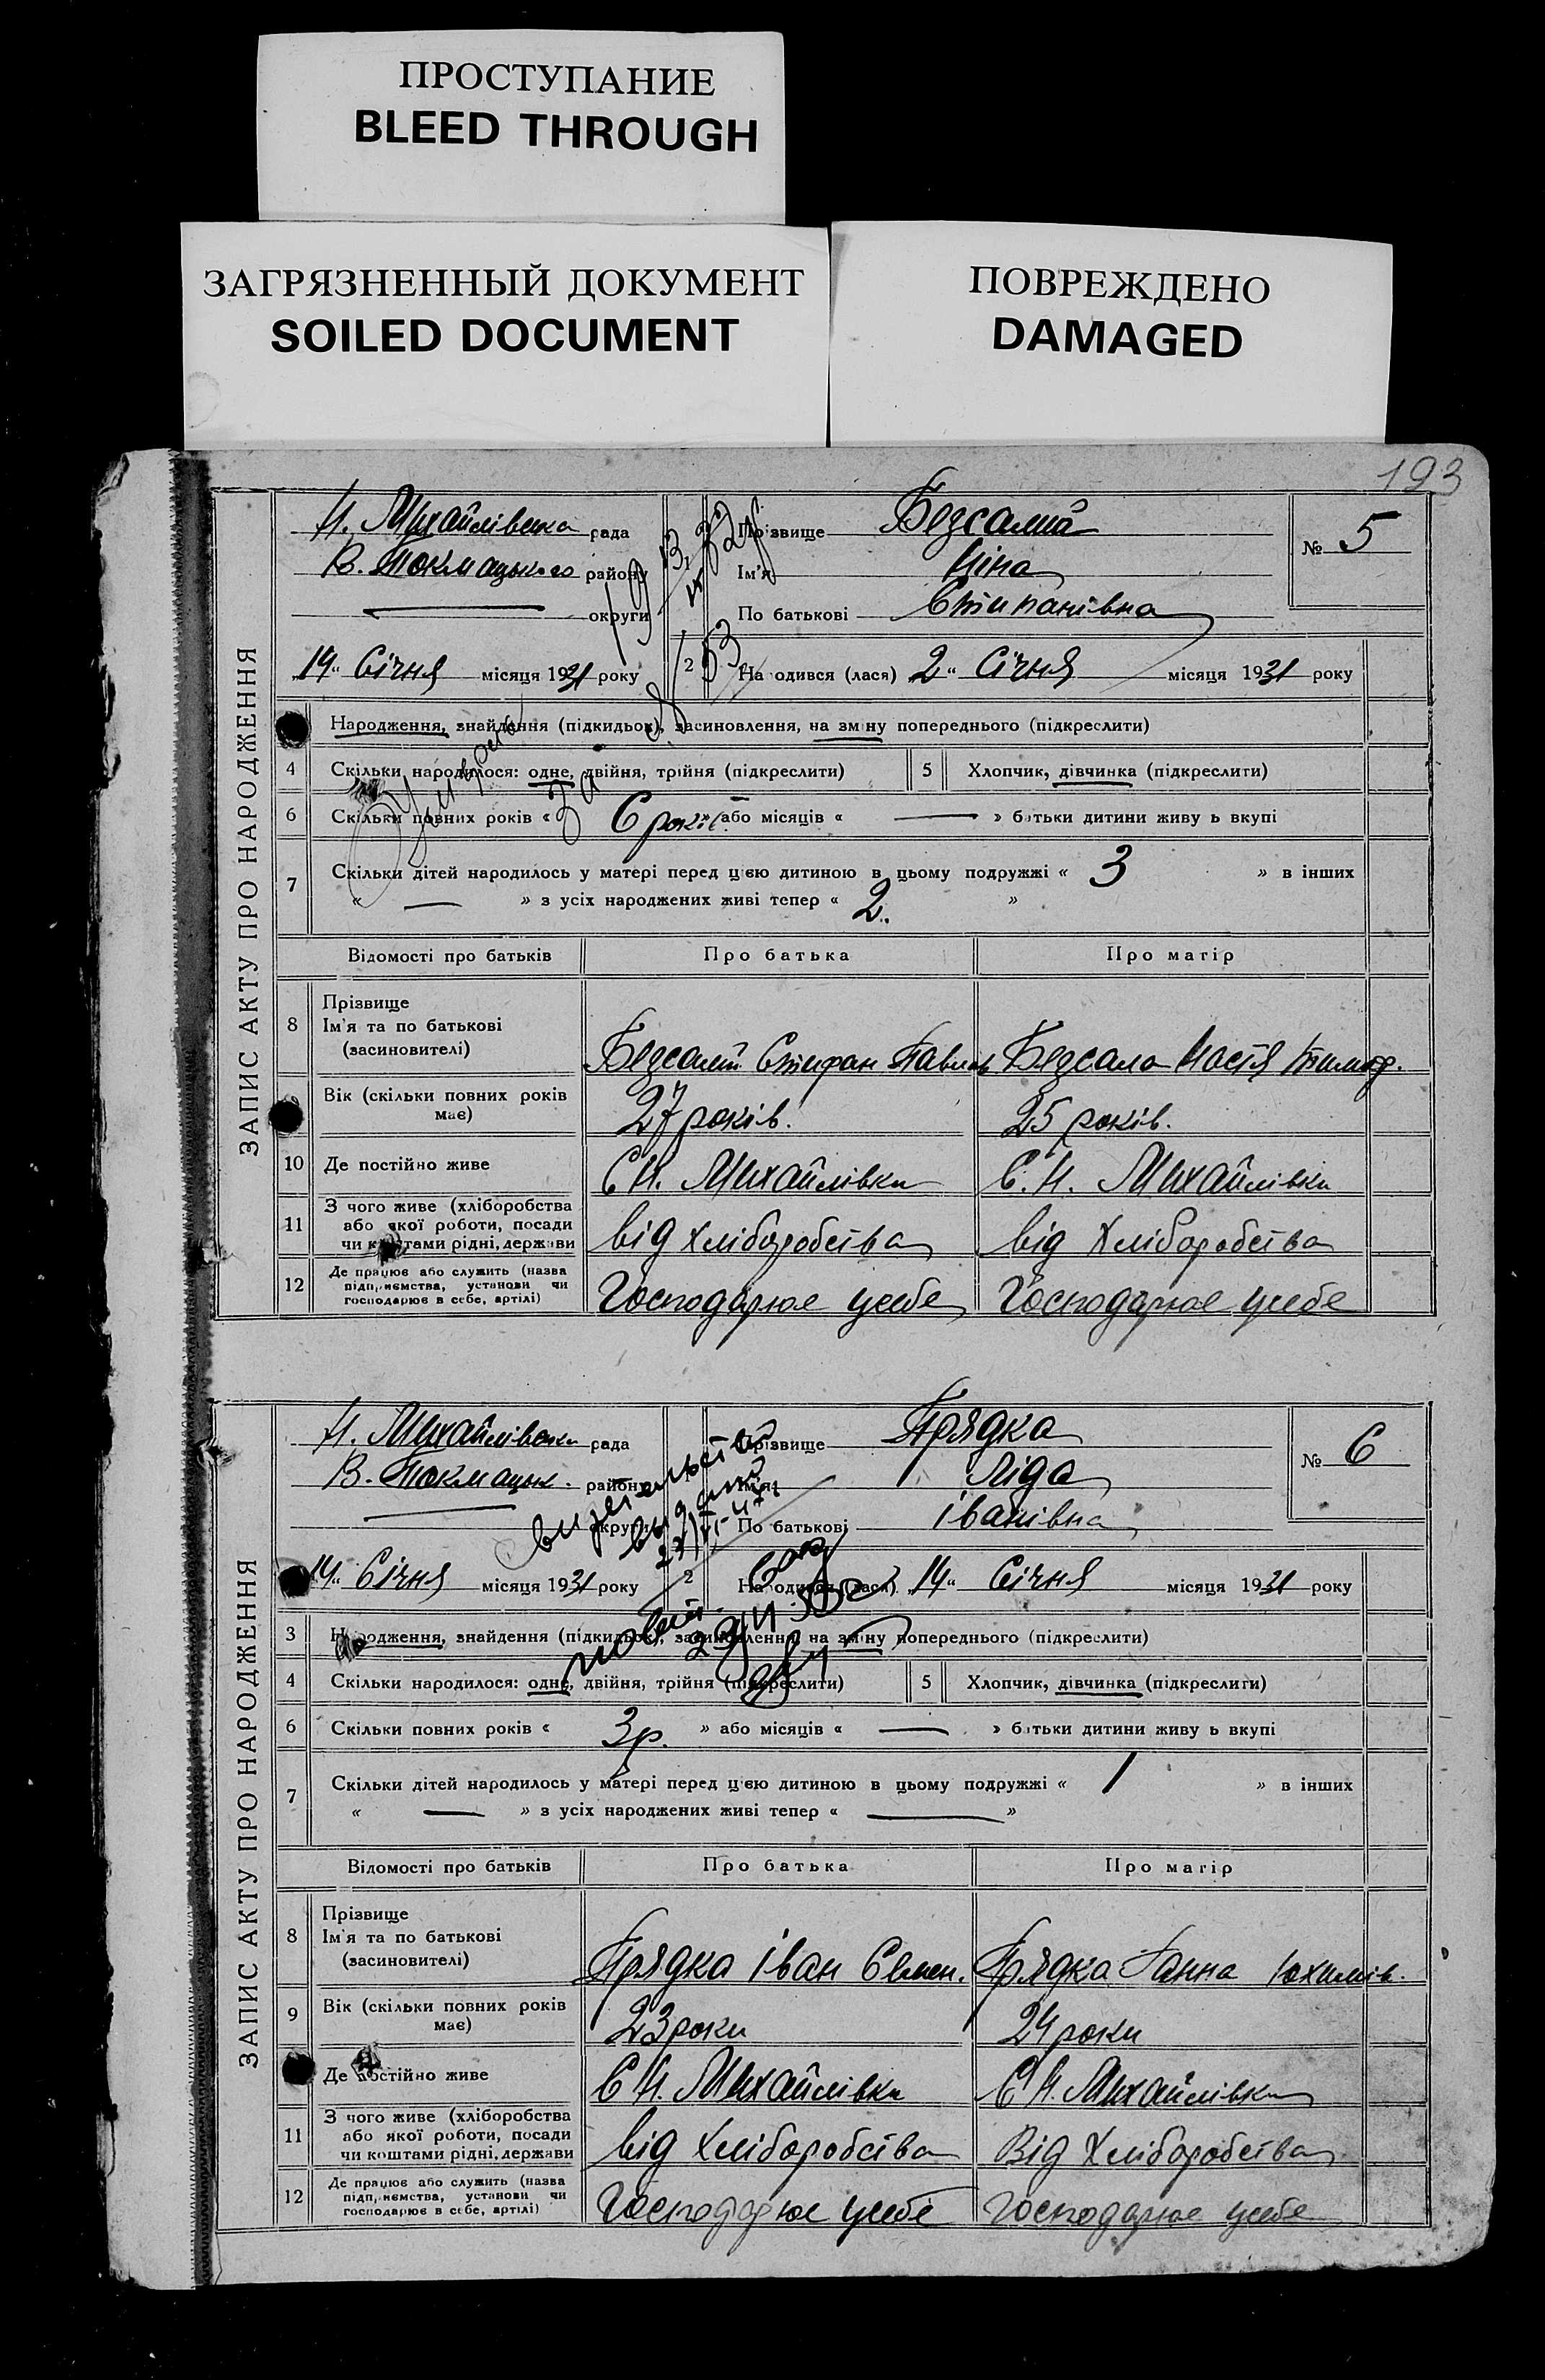 ПРОСТУПАНИЕ
BLEED THROUGH
ЗАГРЯЗНЕННЫЙ ДОКУМЕНТ
SOILED DOCUMENT
ПОВРЕЖДЕНО
DAMAGED
193
ЗАПИС АКТУ ПРО НАРОДЖЕННЯ
Н. Михайлівська рада
В. Токмацького району
округи
Прізвище Безсалий
Ім'я Ніна
По батькові Степанівна
№ 5
„14" Січня місяця 1931 року
2 На одився (лася) „2" Січня місяця 1931 року
Народження, знайдення (підкидьок), засиновлення, на зміну попереднього (підкреслити)
4 Скільки народилося: одне, двійня, трійня (підкреслити) 5 Хлопчик, дівчинка (підкреслити)
6 Скільки повних років « 6 років або місяців « — » батьки дитини живу ь вкупі
7 Скільки дітей народилось у матері перед цією дитиною в цьому подружжі « 3 » в інших
« — » з усіх народжених живі тепер « 2 »
Відомості про батьків Про батька Про матір
8 Прізвище
Ім'я та по батькові
(засиновителі)
Безсалий Стефан Павлов Безсала Настя Тимоф.
Вік (скільки повних років має) 27 років. 25 років.
10 Де постійно живе С Н. Михайлівки С. Н. Михайлівки
11 З чого живе (хліборобства
або якої роботи, посади
чи коштами рідні, держави
від хліборобства від хліборобства
12 Де працює або служить (назва
підприємства, установи чи
господарює в себе, артілі)
Господарює усебе Господарює усебе
ЗАПИС АКТУ ПРО НАРОДЖЕННЯ
Н. Михайлівська рада
В. Токмацьк. району
округи
Прізвище Прядка
Ім'я Ліда
По батькові Іванівна
№ 6
„14" Січня місяця 1931 року
2 На одився (лася) „14" Січня місяця 1931 року
3 Народження, знайдення (підкидьок), засиновлення, на зміну попереднього (підкреслити)
4 Скільки народилося: одне, двійня, трійня (підкреслити) 5 Хлопчик, дівчинка (підкреслити)
6 Скільки повних років « 3 р. » або місяців « — » батьки дитини живу ь вкупі
7 Скільки дітей народилось у матері перед цією дитиною в цьому подружжі « 1 » в інших
« — » з усіх народжених живі тепер « — »
Відомості про батьків Про батька Про матір
8 Прізвище
Ім'я та по батькові
(засиновителі)
Прядка Іван Семен. Прядка Ганна Юхимів.
9 Вік (скільки повних років має) 23 роки 24 роки
Де постійно живе С Н. Михайлівки С Н. Михайлівки
11 З чого живе (хліборобства
або якої роботи, посади
чи коштами рідні, держави
від хліборобства Від хліборобства
12 Де працює або служить (назва
підприємства, установи чи
господарює в себе, артілі)
Господарює усебе Господарює усебе